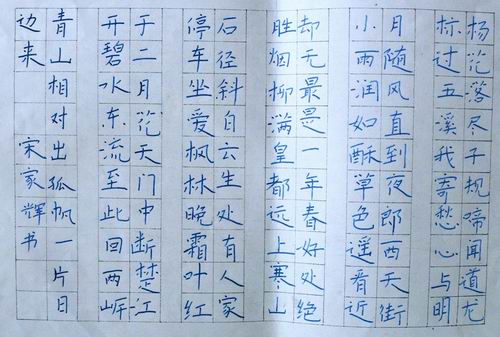 杨花落尽子规啼闻道龙
标过五溪我寄愁心与明
月随风直到夜郎西天街
小雨润如酥草色遥看近
却无最是一年春好处绝
胜烟柳满皇都远上寒山
石径斜白云生处有人家
停车坐爱枫林晚霜叶红
于二月花天门中断楚江
开碧水东流至此回两岸
青山相对出孤帆一片日
边来 宋家辉书